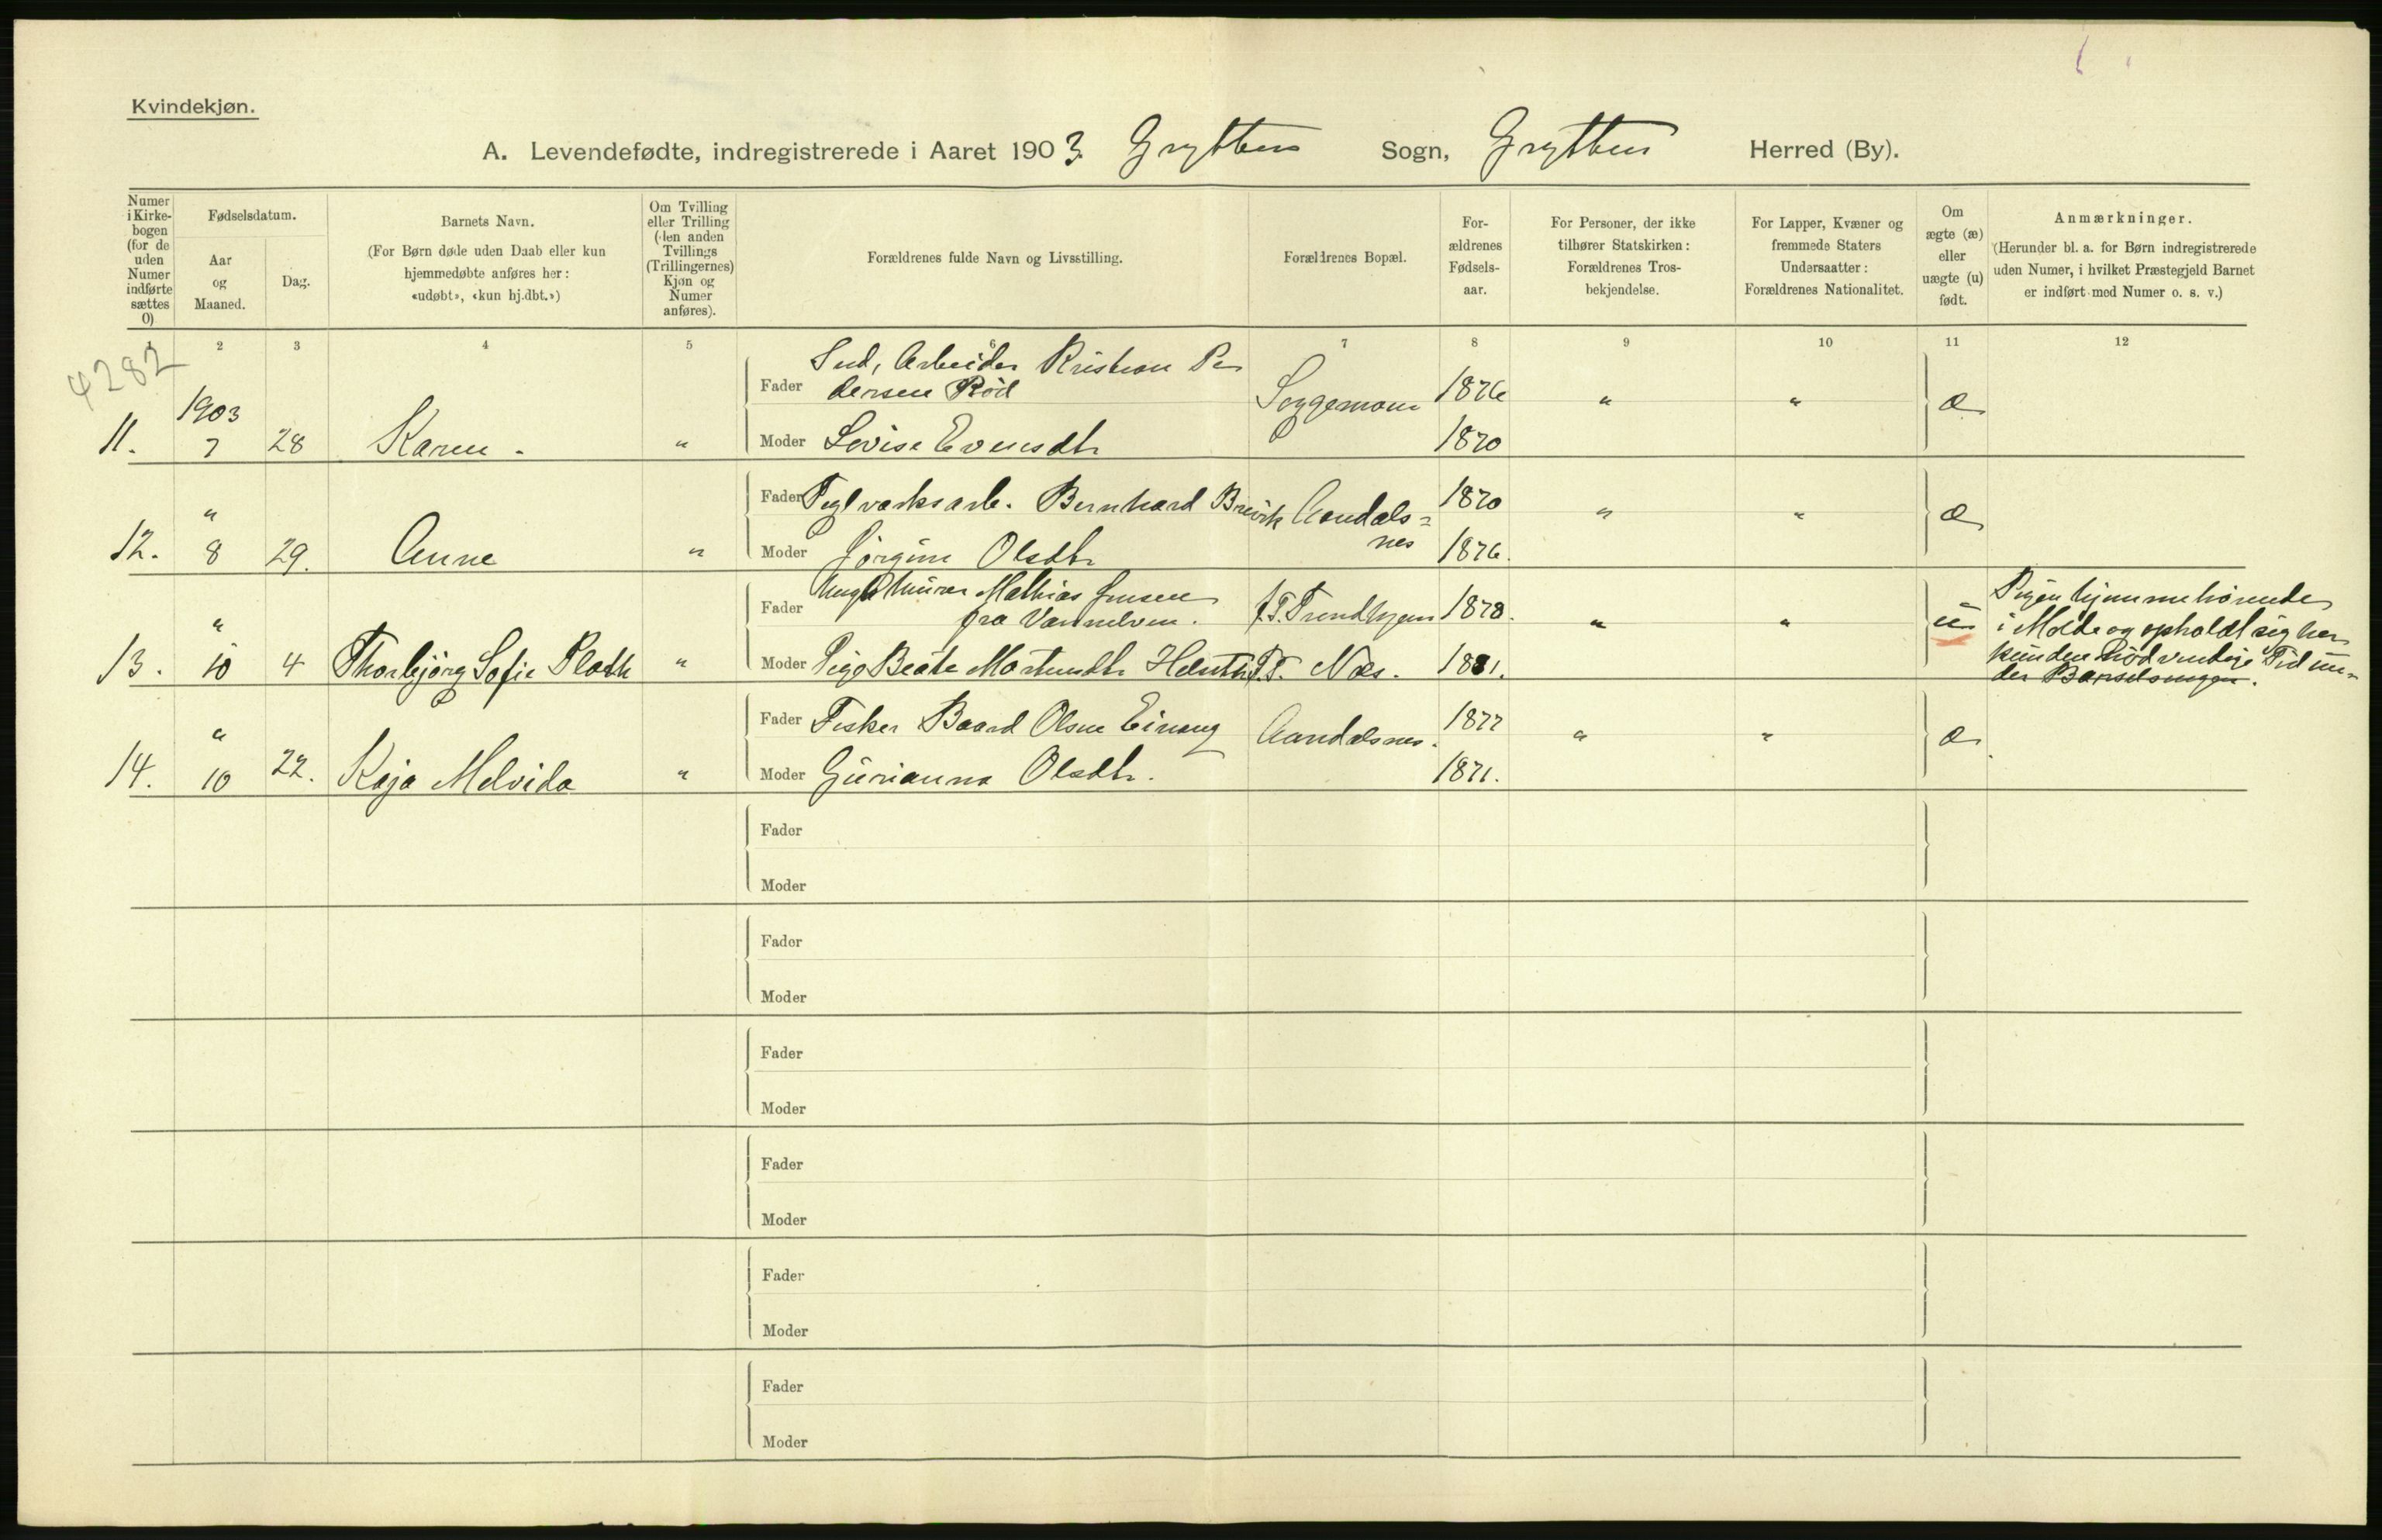 Kvindekjøn.
A. Levendefødte, indregistrerede i Aaret 1903. Grytten Sogn, Grytten Herred (By).
Numer i Kirke-bogen (for de uden Numer indførte sættes 0)
Fødselsdatum.
Aar og Maaned.
Dag.
Barnets Navn.
(For Børn døde uden Daab eller kun hjemmedøbte anføres her: «udøbt», «kun hj.dbt.»)
Om Tvilling eller Trilling (den anden Tvillings (Trillingernes) Kjøn og Numer anføres).
Forældrenes fulde Navn og Livsstilling.
Forældrenes Bopæl.
For-ældrenes Fødsels-aar.
For Personer, der ikke tilhører Statskirken: Forældrenes Tros-bekjendelse.
For Lapper, Kvæner og fremmede Staters Undersaatter: Forældrenes Nationalitet.
Om ægte (æ) eller uægte (u) født.
Anmærkninger.
(Herunder bl. a. for Børn indregistrerede uden Numer, i hvilket Præstegjeld Barnet er indført med Numer o. s. v.)
1 2 3 4 5 6 7 8 9 10 11 12
4282
Fader Smd, Arbeider Kristian Pe
dersen Rød Soggemoen 1876 " " æ
11. 1903 7 28 Karen. " Moder Lovise Evensdtr 1870
Fader Teglværksarb. Bernhard Brevik Aandals= 1870 " " æ
12. " 8 29. Anne " Moder Jørgine Olsdtr nes 1876.
Fader Ungk Murer Mathias Jensen
fra Vannelven. f.T. Trondhjem 1878. " " u
13. " 10 4 Thorbjørg Sofie Plath " Moder Pige Beate Martensdtr T.T. Næs. 1881.
Pigen hjemmehørende
i Molde og opholdt sig her
kun den nødvendige Tid un-
der Barselsengen.
Fader Fisker Baard Olsen Einang Aandalsnes. 1877 " " æ
14. " 10 22. Kaja Melvida " Moder Gurianna Olsdtr. 1871.
Fader
Moder
Fader
Moder
Fader
Moder
Fader
Moder
Fader
Moder
Fader
Moder